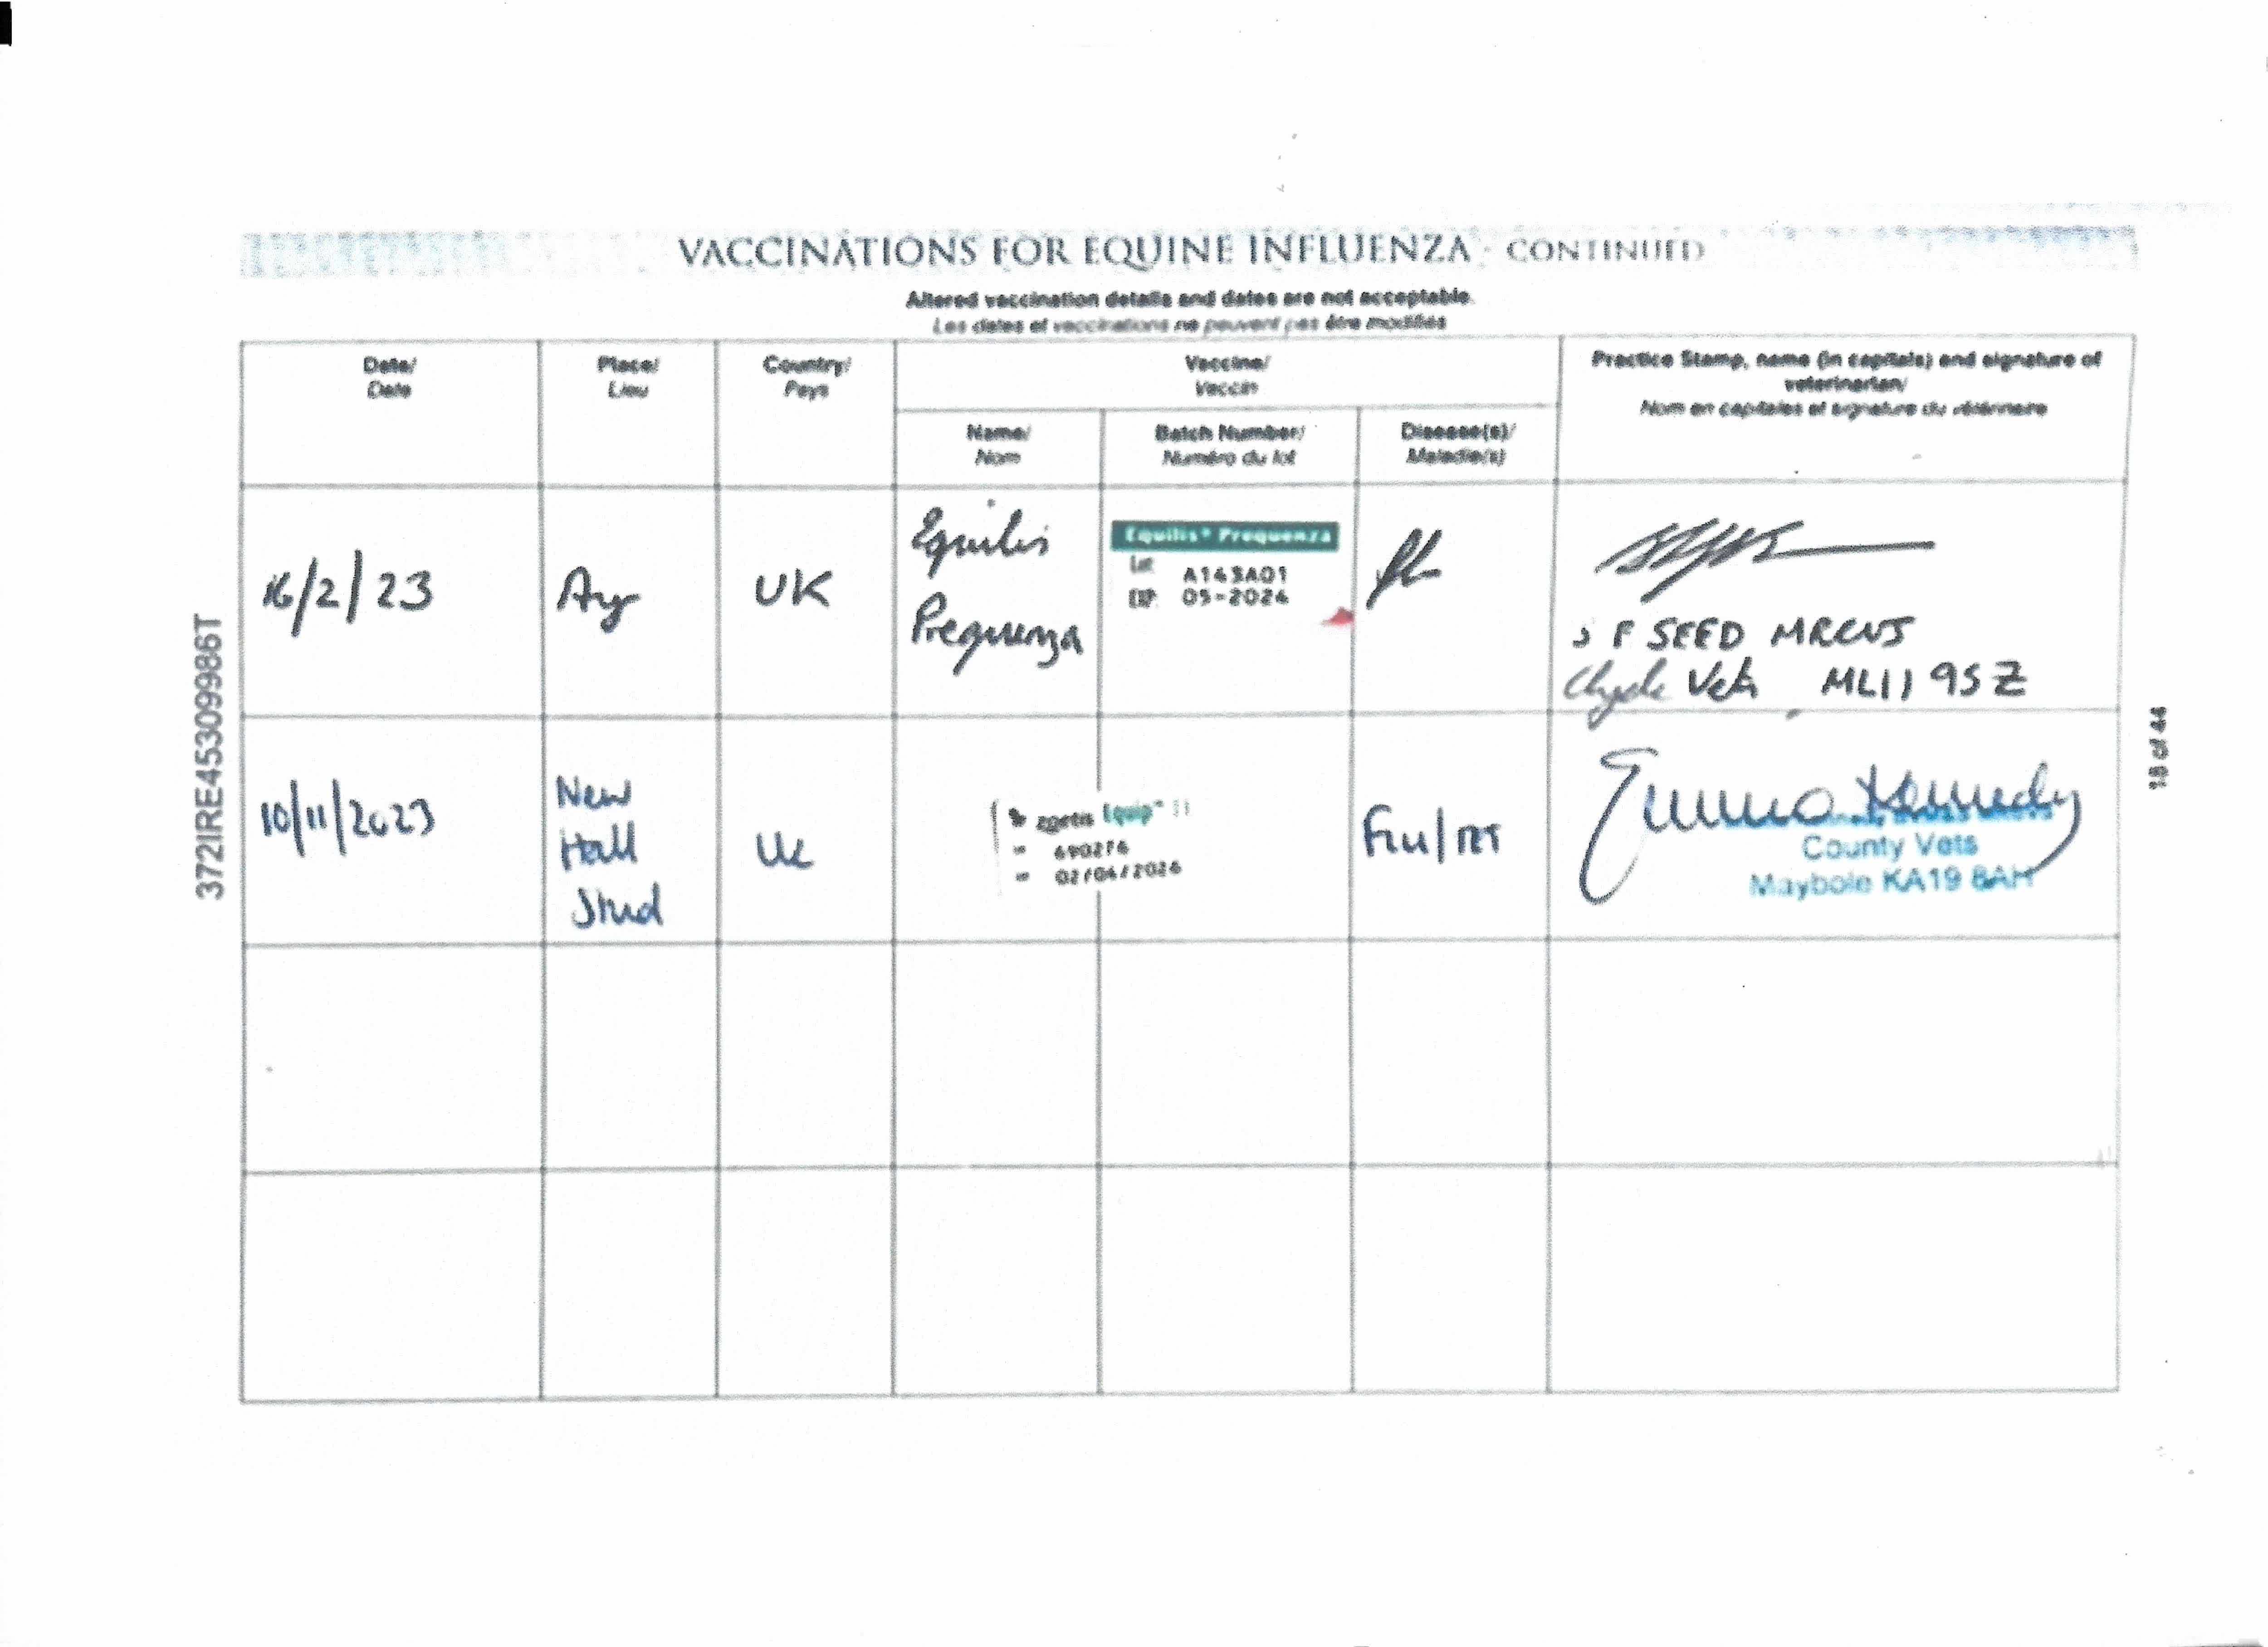 VACCINATIONS FOR EQUINE INFLUENZA - CONTINUED
Altered vaccination details and dates are not acceptable.
Les dates et vaccinations ne peuvent pas être modifiés
Date/
Date
Place/
Lieu
Country/
Pays
Vaccine/
Vaccin
Practice Stamp, name (in capitals) and signature of
veterinarian/
Nom en capitales et signature du vétérinaire
Name/
Nom
Batch Number/
Numéro du lot
Disease(s)/
Maladie(s)
16/2/23
Ayr
UK
Equilis
Prequenza
Equilis® Prequenza
Lot
A143A01
EXP. 05-2024
flu
S F SEED MRCVS
Clyde Vets ML11 9SZ
10/11/2023
New
Hall
Stud
UK
zoetis Equip™
690276
02/04/2026
Flu/TET
Emma Kennedy
County Vets
Maybole KA19 8AH
372IRE45309986T
18 of 44